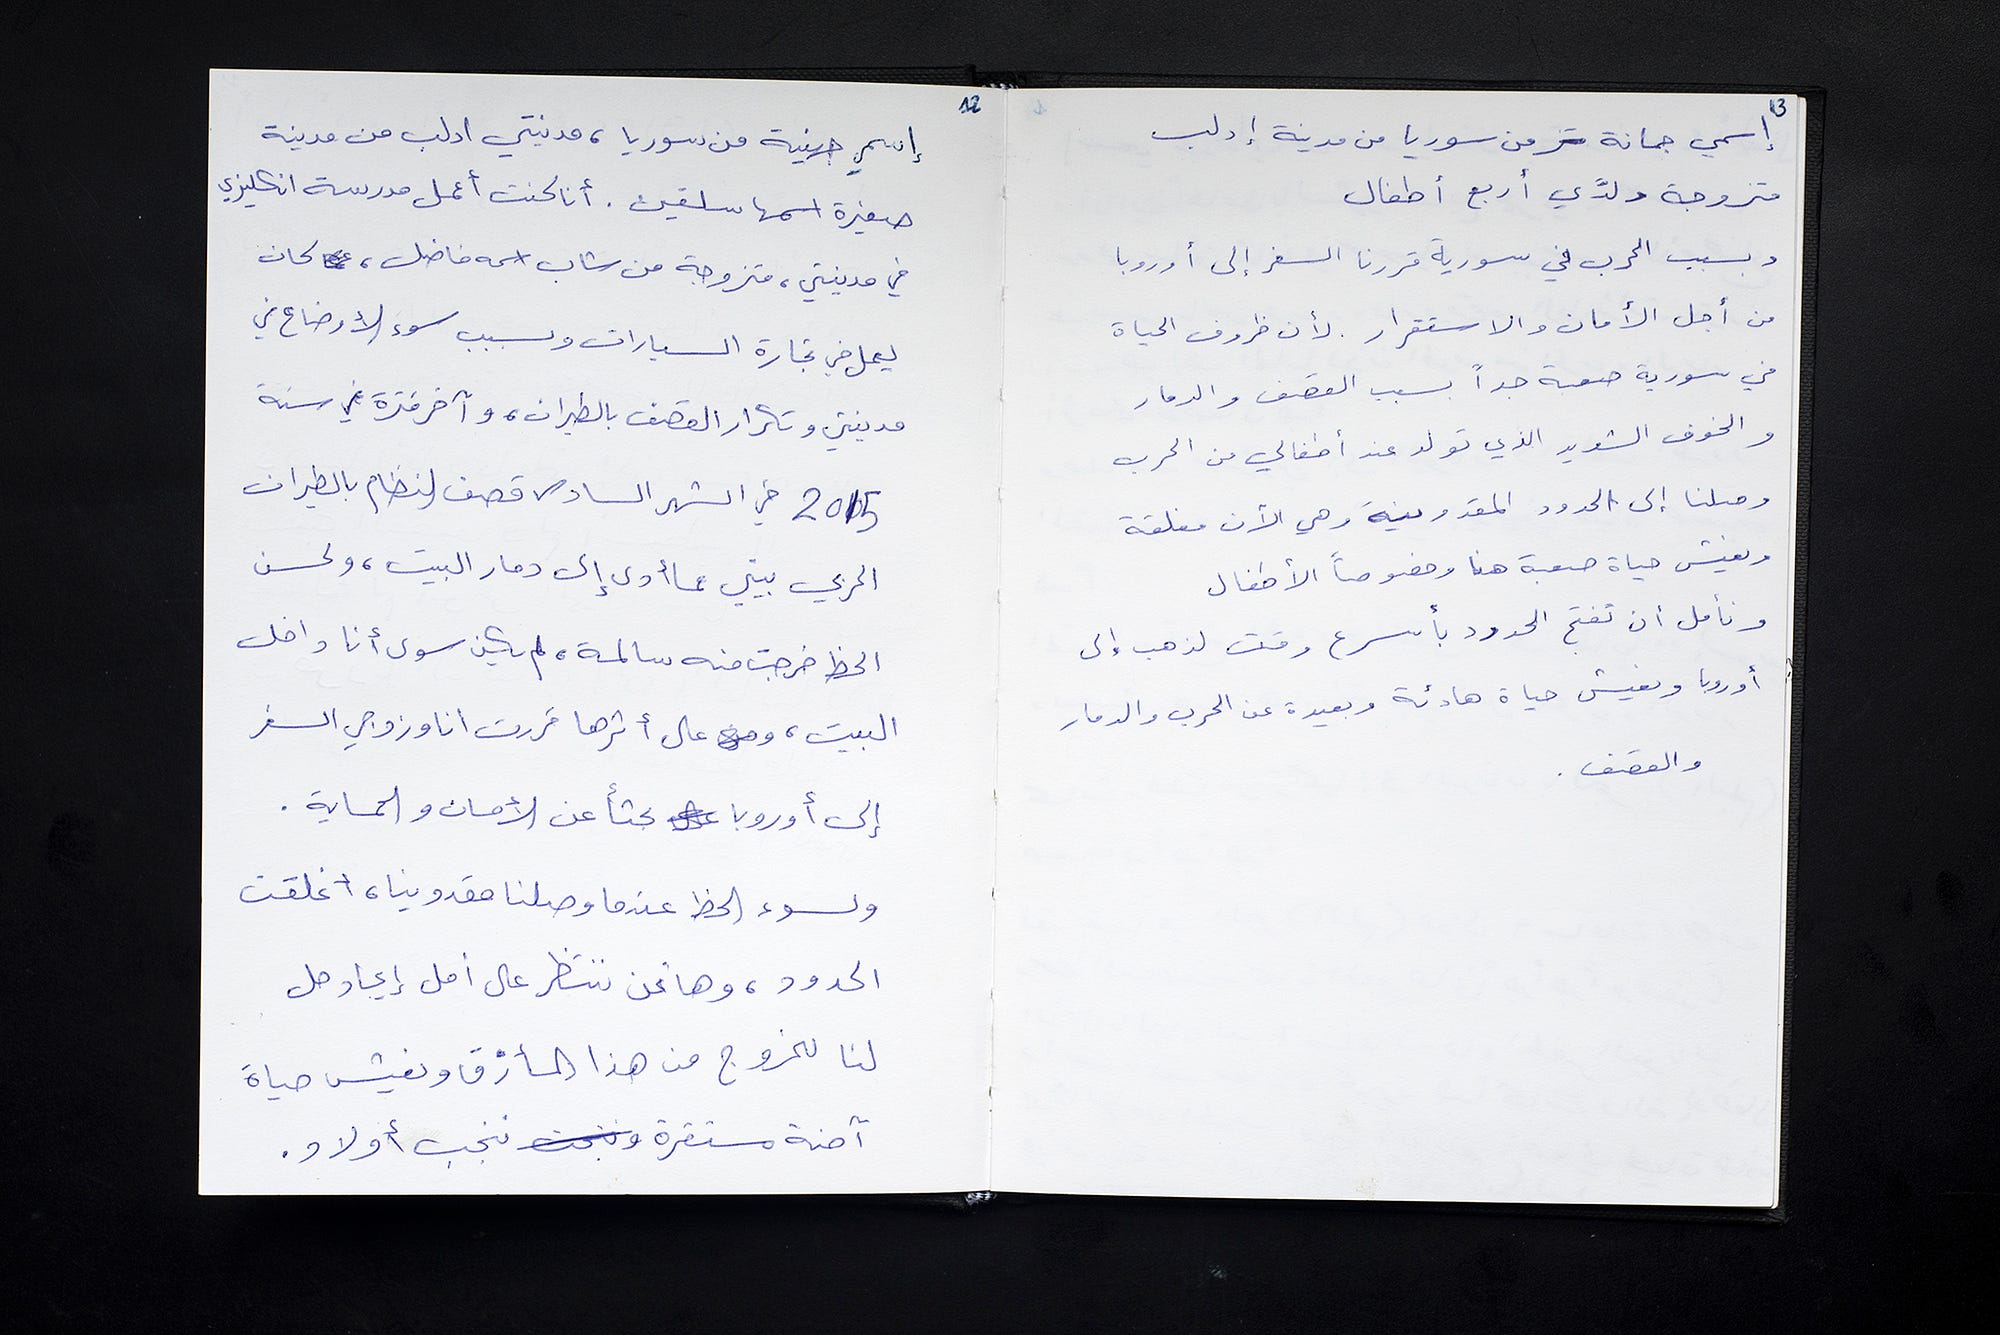 12
إسمي جهينة من سوريا، مدينتي ادلب من مدينة
صغيرة اسمها سلقين. أنا كنت أعمل مدرسة انكليزي
في مدينتي، متزوجة من شاب اسمه فاضل، كان
يعمل في تجارة السيارات وبسبب سوء الأوضاع في
مدينتي وتكرار القصف بالطيران، وآخر فترة في سنة
2015 في الشهر السادس قصف النظام بالطيران
الحربي بيتي مما أدى إلى دمار البيت، ولحسن
الحظ خرجت منه سالمة، لم يكن سوى أنا داخل
البيت، وعلى أثرها قررت أنا وزوجي السفر
إلى أوروبا بحثاً عن الأمان والحماية.
ولسوء الحظ عندما وصلنا مقدونيا، أغلقت
الحدود، وها نحن ننتظر على أمل إيجاد حل
لنا للخروج من هذا المأزق ونعيش حياة
آمنة مستقرة وننجب أولاد.
13
إسمي جمانة من سوريا من مدينة إدلب
متزوجة ولدَّي أربع أطفال
وبسبب الحرب في سورية قررنا السفر إلى أوروبا
من أجل الأمان والاستقرار. لأن ظروف الحياة
في سورية صعبة جداً بسبب القصف والدمار
والخوف الشديد الذي تولد عند أطفالي من الحرب
وصلنا إلى الحدود المقدونية وهي الأن مغلقة
ونعيش حياة صعبة هنا وخصوصاً الأطفال
ونأمل أن تفتح الحدود بأسرع وقت لنذهب إلى
أوروبا ونعيش حياة هادئة وبعيدة عن الحرب والدمار
والقصف.